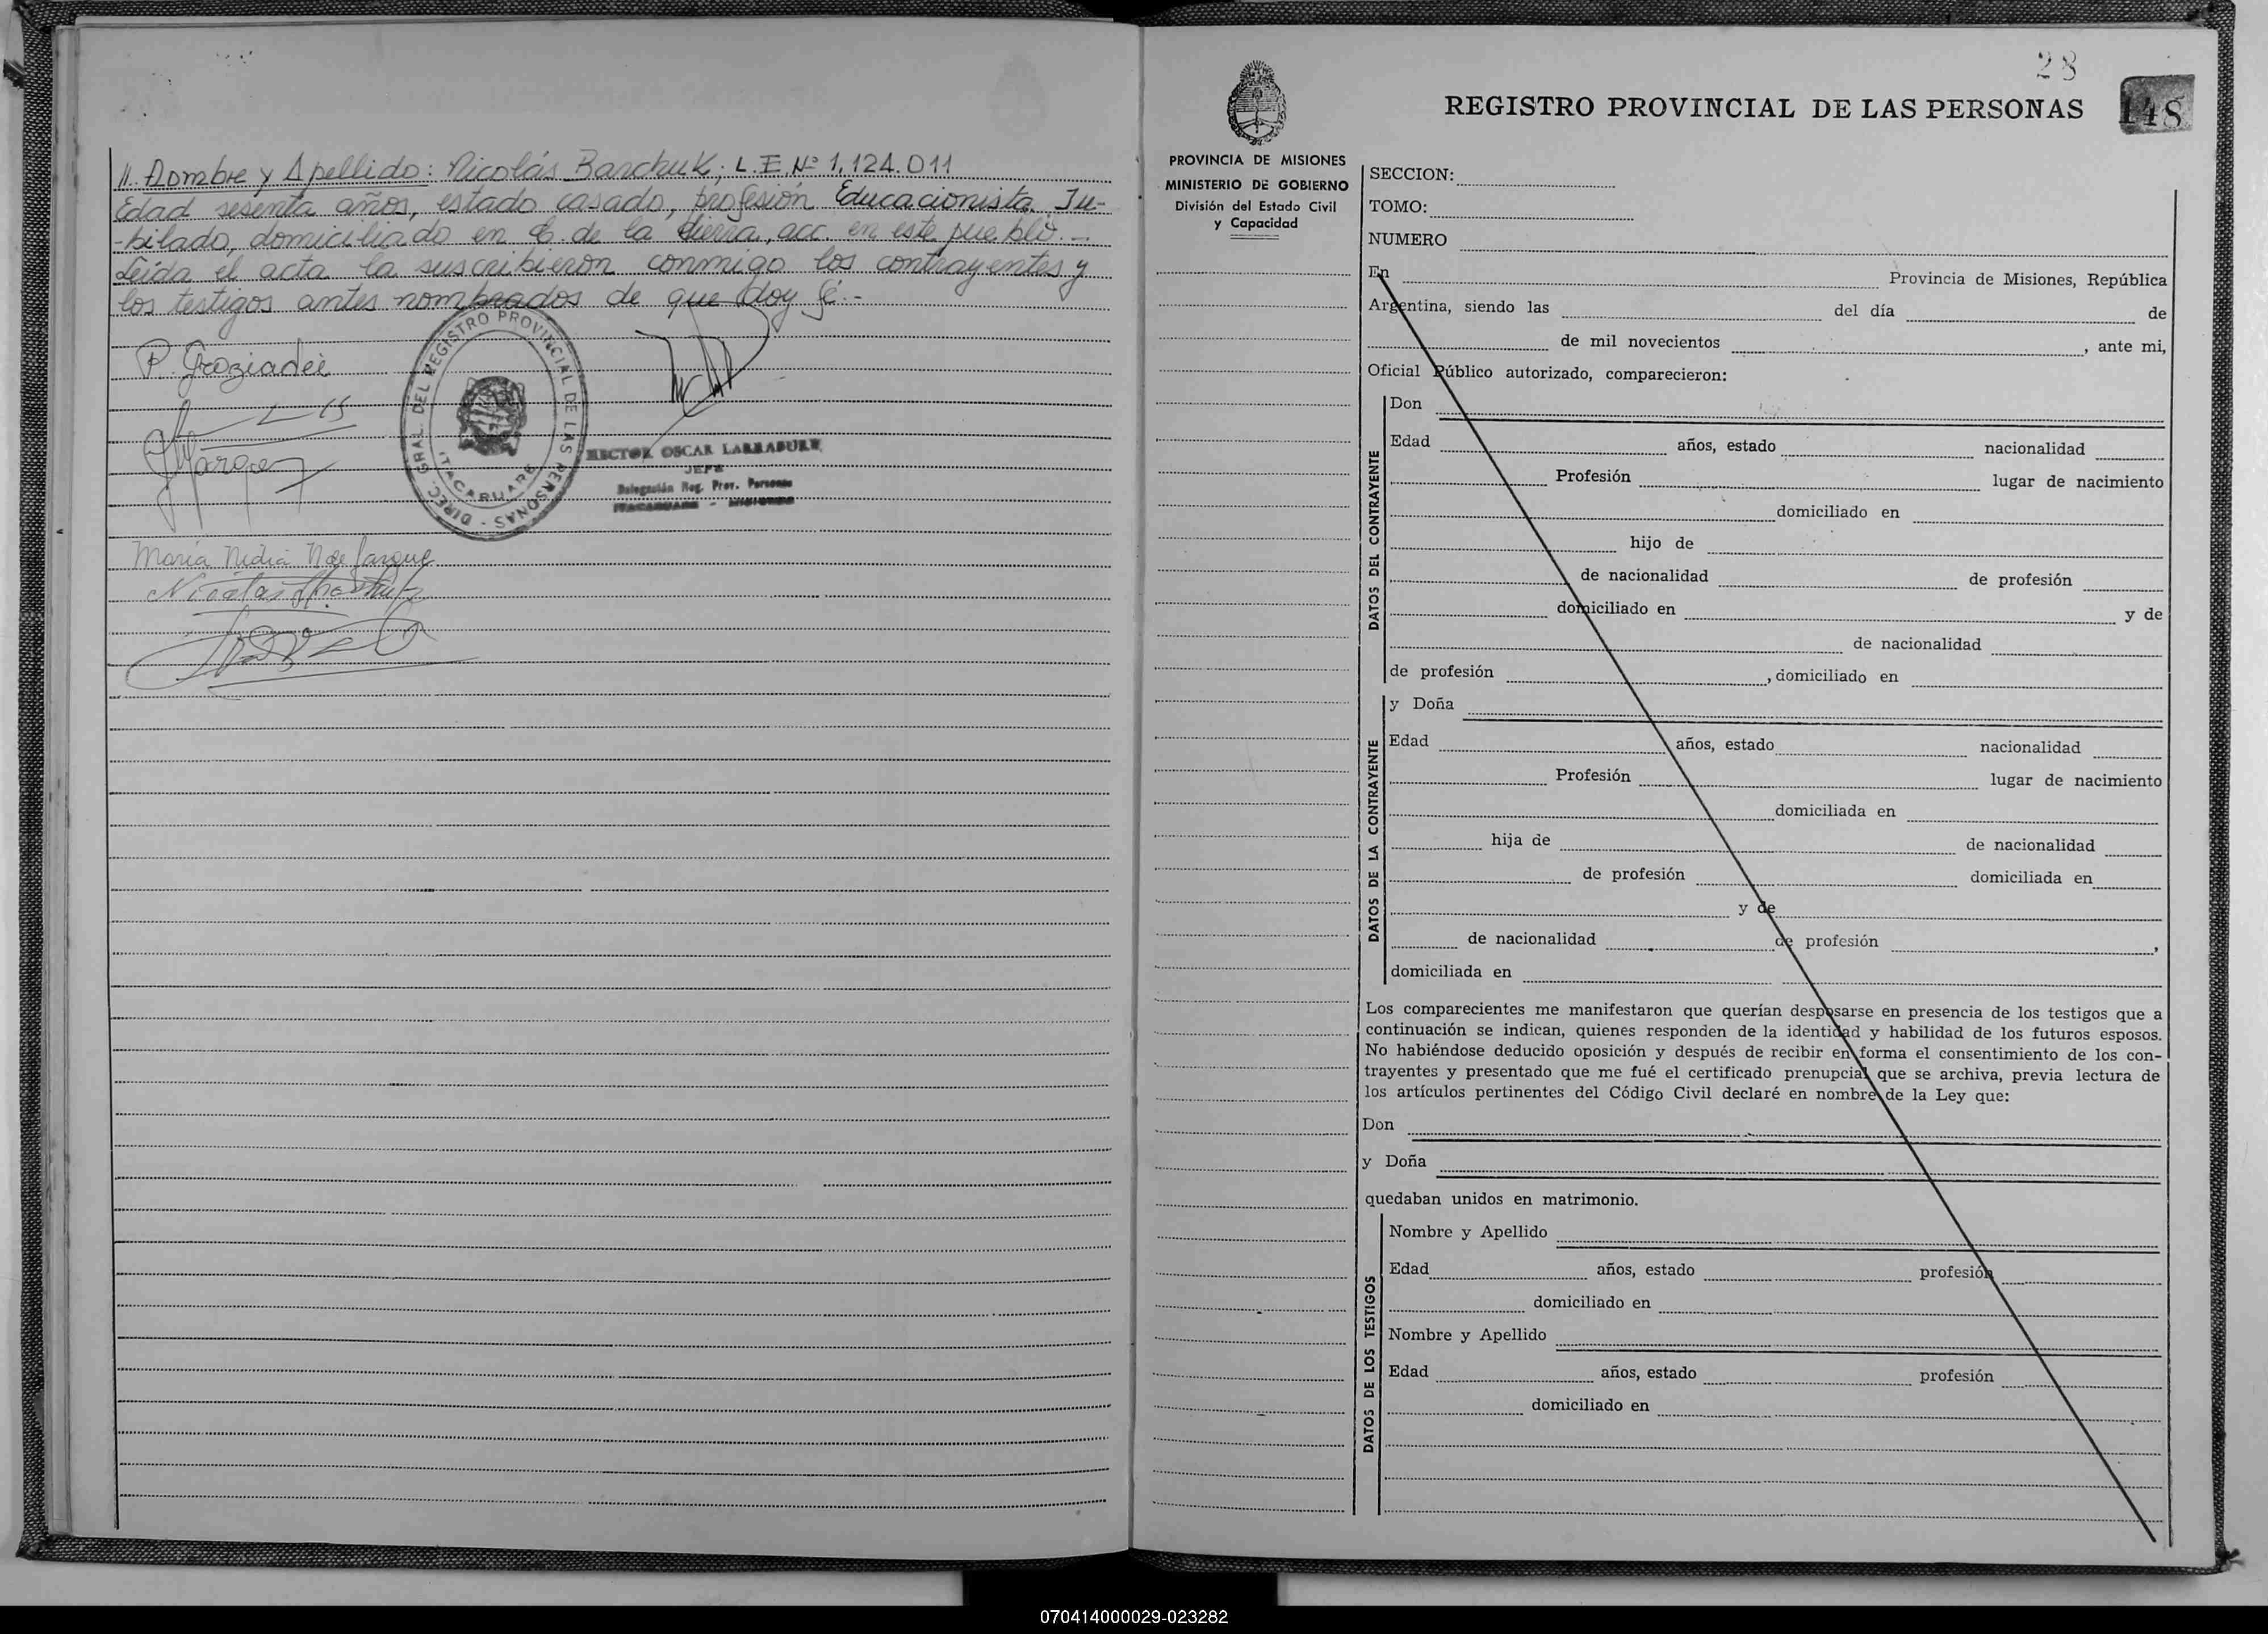 //. Nombre y Apellido: Nicolás Barchuk; L.E.Nº 1,124.011
Edad sesenta años, estado casado, profesión Educacionista Ju-
-bilado, domiciliado en C. de la Sierra, acc. en este pueblo.-
Leída el acta la suscribieron conmigo los contrayentes y
los testigos antes nombrados de que doy fé.-
DIREC. GRAL. DEL REGISTRO PROVINCIAL DE LAS PERSONAS -
ITACARUARE
P. Graziadei
HECTOR OSCAR LARRABURE
JEFE
Delegación Reg. Prov. Personas
ITACARUARE - MISIONES
María Nidia N de
Nicolas
28
148
REGISTRO PROVINCIAL DE LAS PERSONAS
PROVINCIA DE MISIONES
MINISTERIO DE GOBIERNO
División del Estado Civil
y Capacidad
SECCION:
TOMO:
NUMERO
En Provincia de Misiones, República
Argentina, siendo las del día de
de mil novecientos , ante mi,
Oficial Público autorizado, comparecieron:
DATOS DEL CONTRAYENTE
Don
Edad años, estado nacionalidad
Profesión lugar de nacimiento
domiciliado en
hijo de
de nacionalidad de profesión
domiciliado en y de
de nacionalidad
de profesión , domiciliado en
DATOS DE LA CONTRAYENTE
y Doña
Edad años, estado nacionalidad
Profesión lugar de nacimiento
domiciliada en
hija de de nacionalidad
de profesión domiciliada en
y de
de nacionalidad de profesión ,
domiciliada en
Los comparecientes me manifestaron que querían desposarse en presencia de los testigos que a
continuación se indican, quienes responden de la identidad y habilidad de los futuros esposos.
No habiéndose deducido oposición y después de recibir en forma el consentimiento de los con-
trayentes y presentado que me fué el certificado prenupcial que se archiva, previa lectura de
los artículos pertinentes del Código Civil declaré en nombre de la Ley que:
Don
y Doña
quedaban unidos en matrimonio.
DATOS DE LOS TESTIGOS
Nombre y Apellido
Edad años, estado profesión
domiciliado en
Nombre y Apellido
Edad años, estado profesión
domiciliado en
070414000029-023282